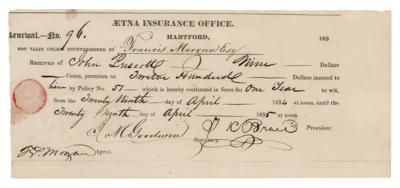 ÆTNA INSURANCE OFFICE.
Renewal.—No 96. HARTFORD, 183
NOT VALID UNLESS COUNTERSIGNED BY Francis Morgan Esq
RECEIVED OF John Priscott Nine Dollars
Cents, premium on Twelve Hundred Dollars insured to
him by Policy No. 51 — which is hereby continued in force for One Year to wit,
from the Twenty Ninth day of April 1834 at noon, until the
Twenty Ninth day of April 1835 at noon.
J M Goodwin Secretary. President.
F. Morgan Agent.